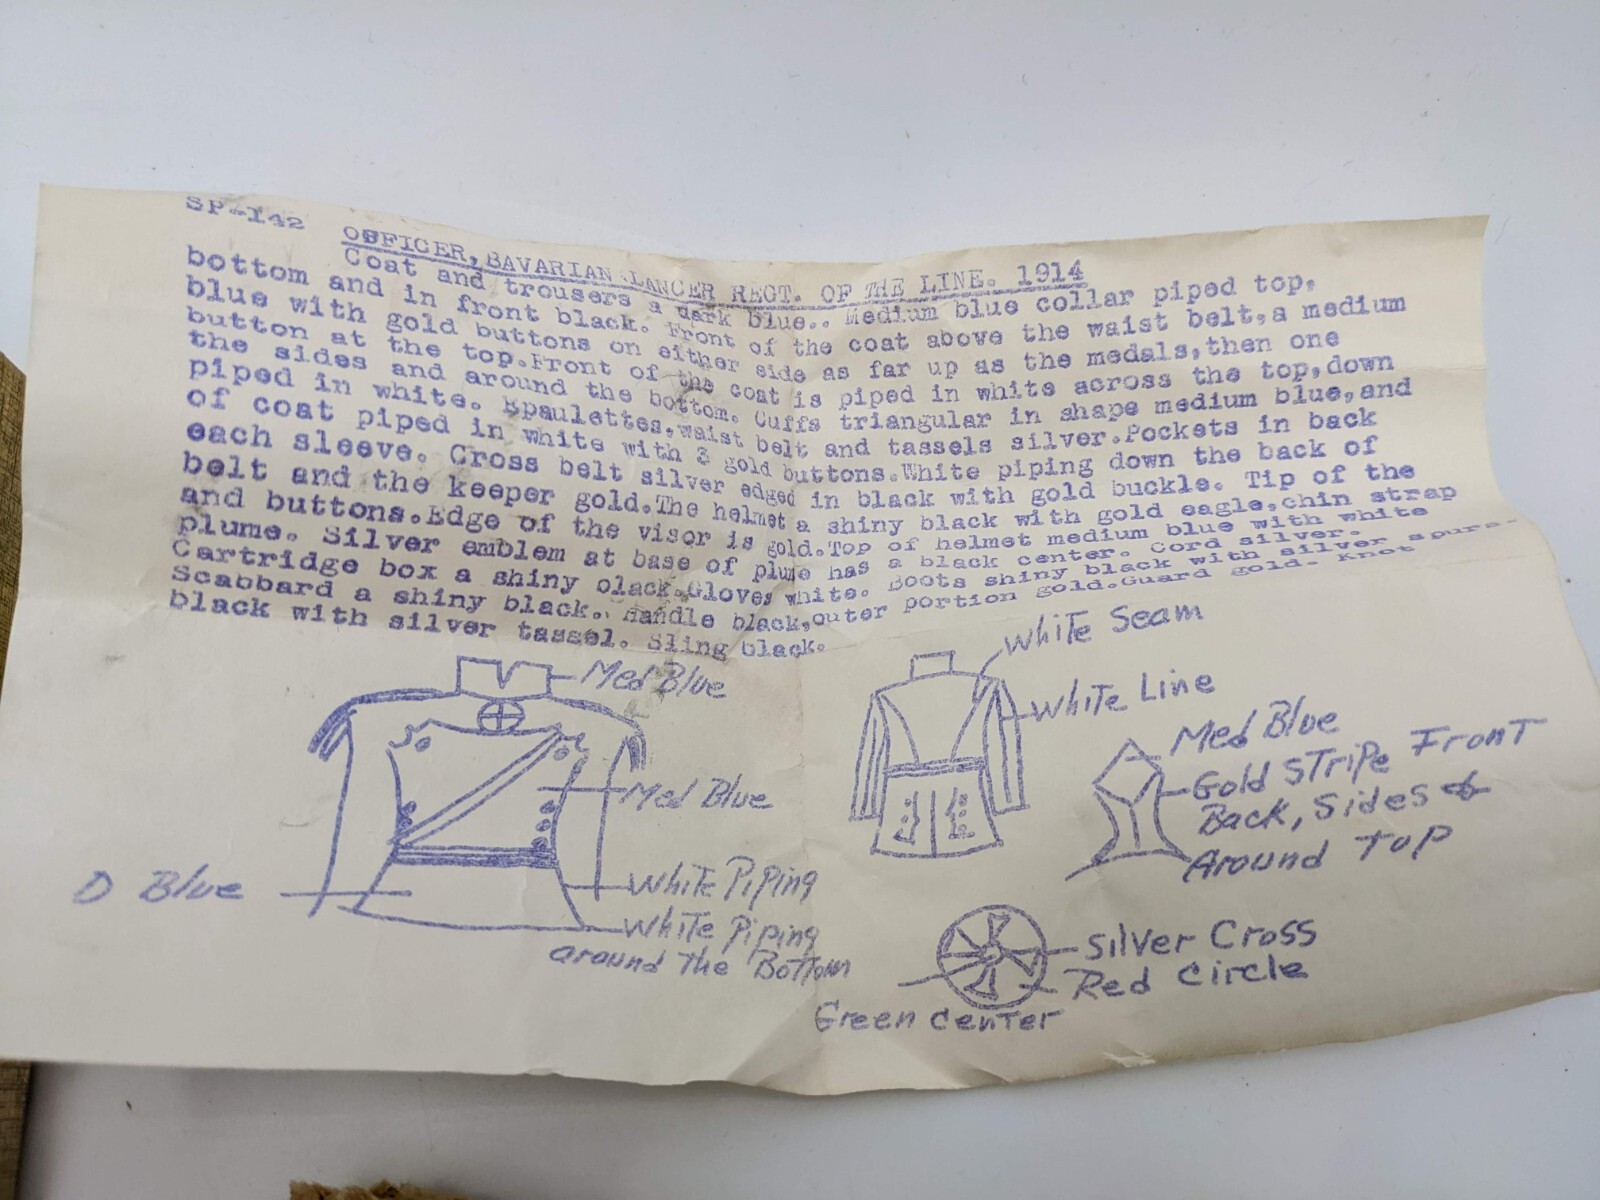 SP-142 OFFICER, BAVARIAN LANCER REGT. OF THE LINE. 1914
Coat and trousers a dark blue.. Medium blue collar piped top,
bottom and in front black. Front of the coat above the waist belt,a medium
blue with gold buttons on either side as far up as the medals,then one
button at the top.Front of the coat is piped in white across the top,down
the sides and around the bottom. Cuffs triangular in shape medium blue,and
piped in white. Epaulettes,waist belt and tassels silver.Pockets in back
of coat piped in white with 3 gold buttons.White piping down the back of
each sleeve. Cross belt silver edged in black with gold buckle. Tip of the
belt and the keeper gold.The helmet a shiny black with gold eagle,chin strap
and buttons.Edge of the visor is gold.Top of helmet medium blue with white
plume. Silver emblem at base of plume has a black center. Cord silver.
Cartridge box a shiny black.Gloves white. Boots shiny black with silver spurs-
Scabbard a shiny black. Handle black,outer portion gold.Guard gold- Knot
black with silver tassel. Sling black.
Med Blue
Med Blue
D Blue
White Piping
White Piping
around The Bottom
White Seam
White Line
Med Blue
Gold STripe FronT
Back, Sides &
Around Top
Silver Cross
Red Circle
Green cenTer